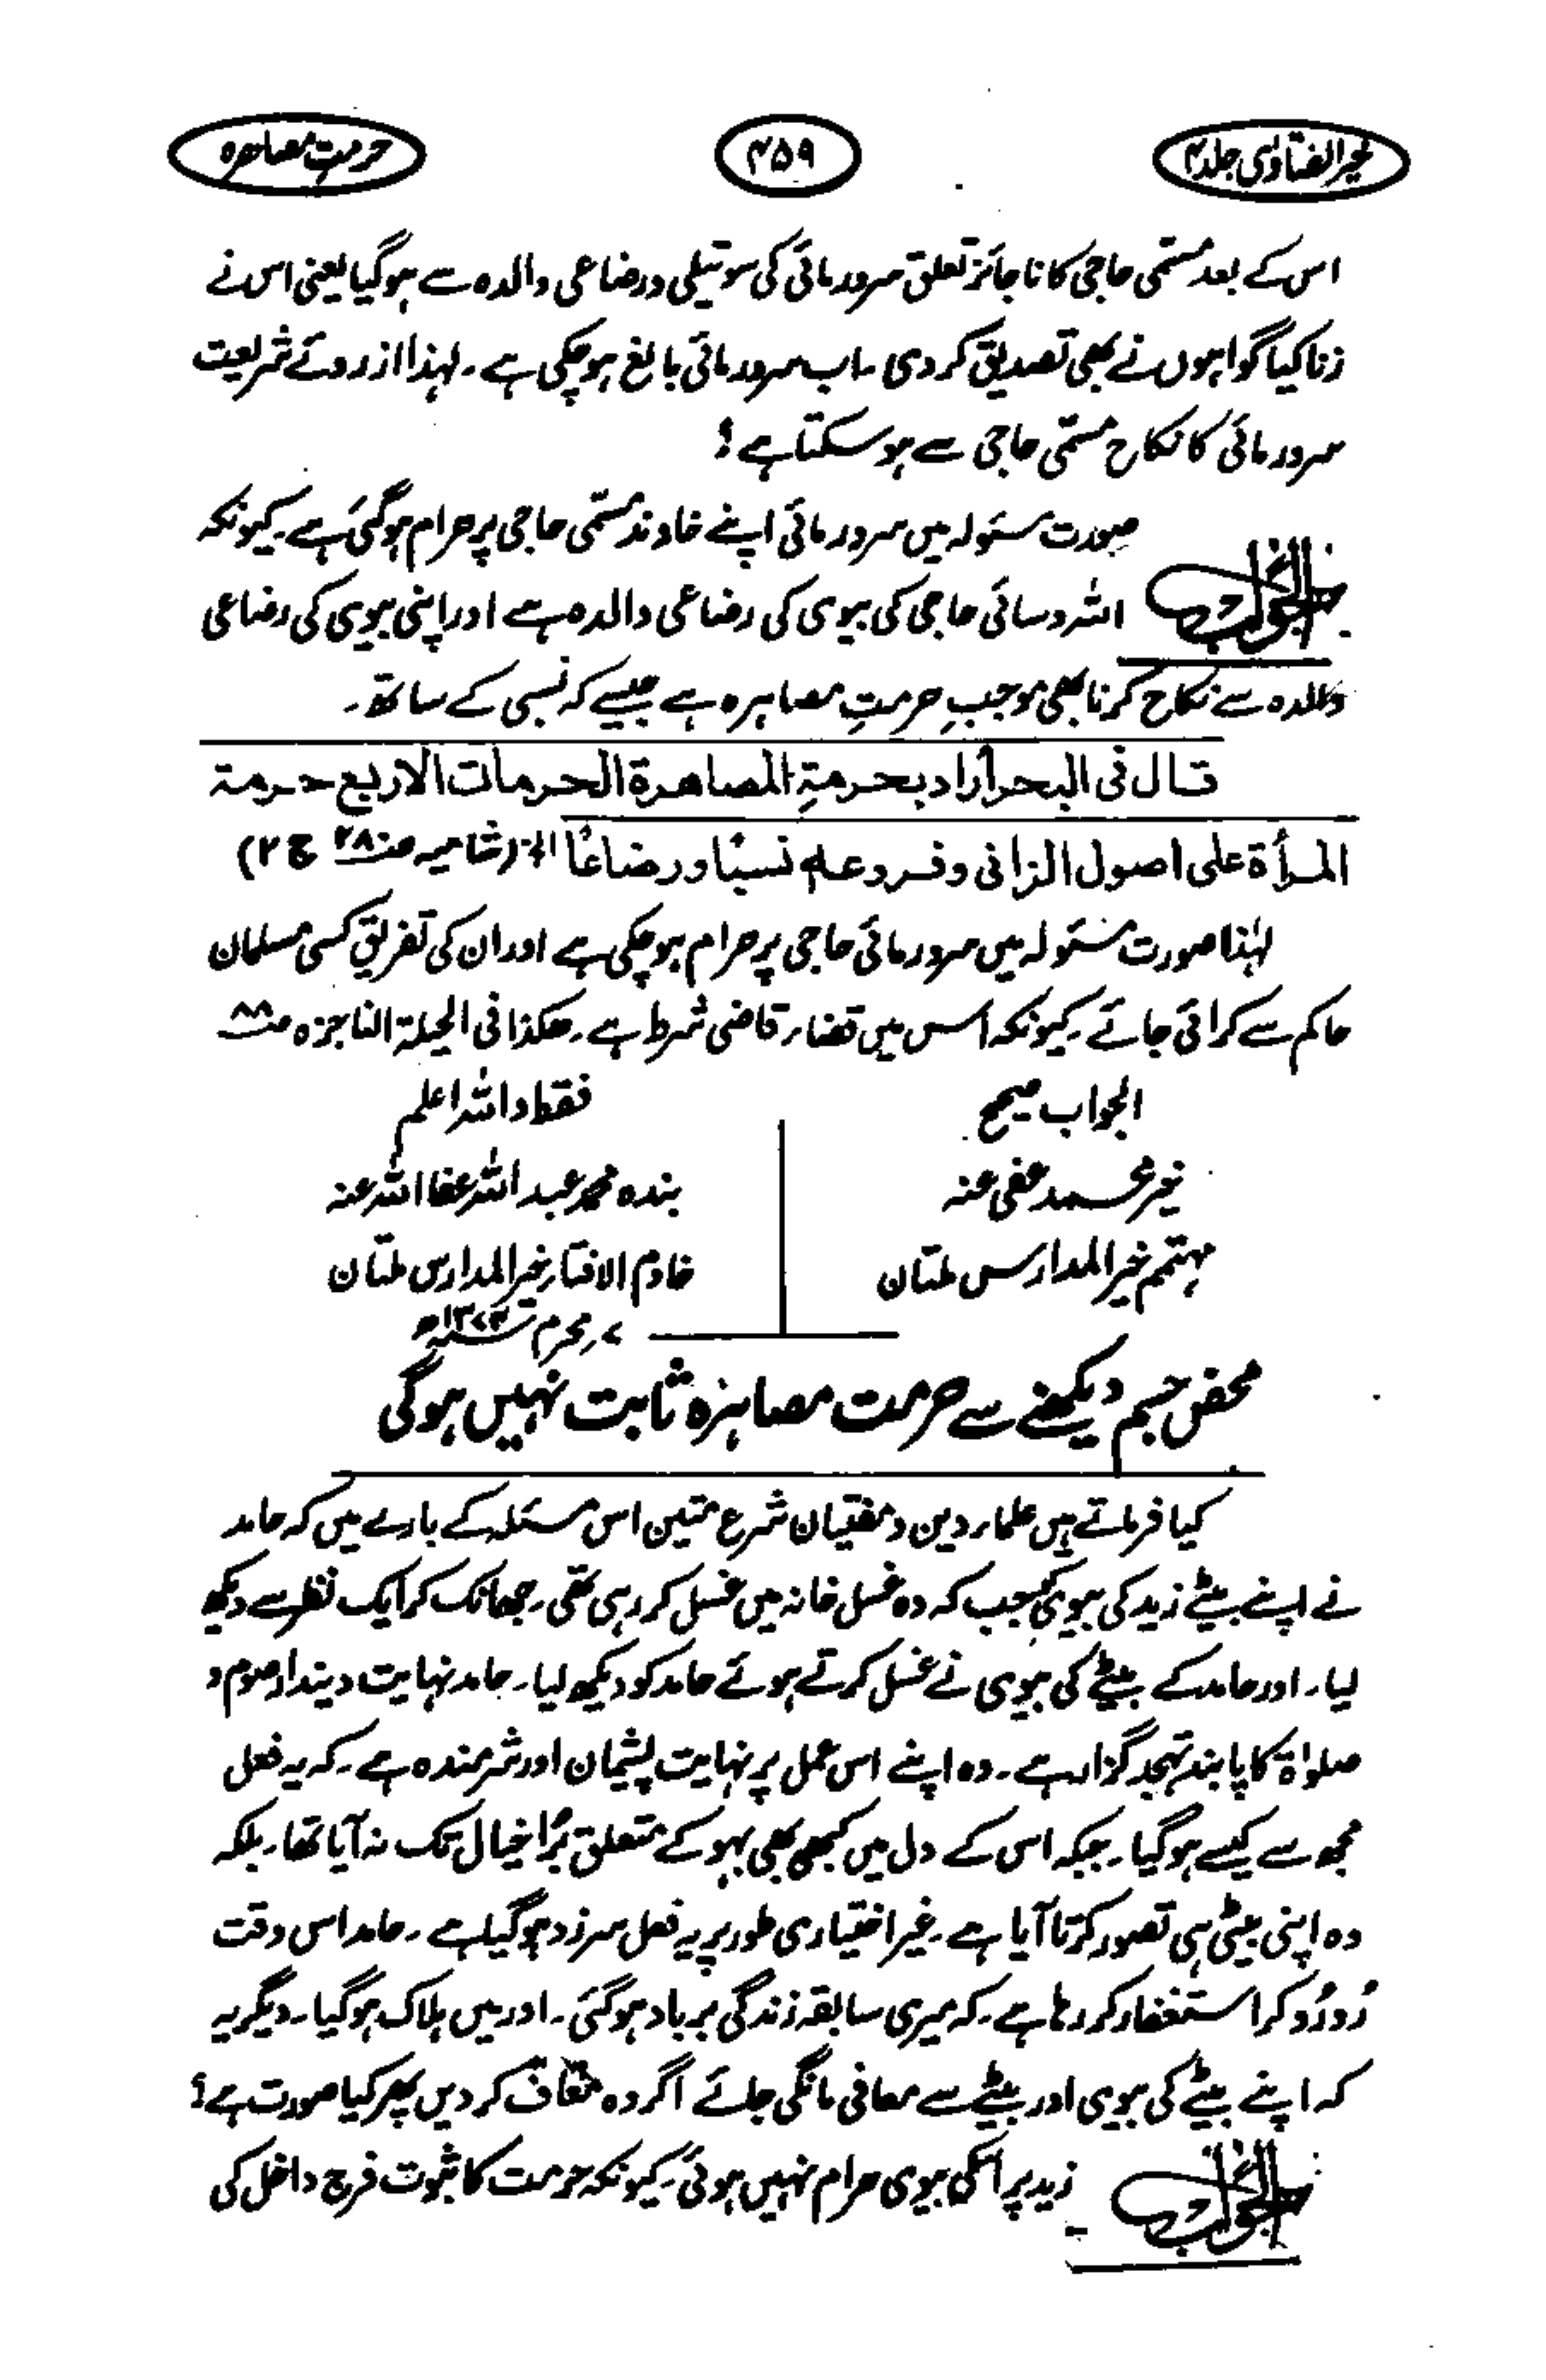 خیر الفتاویٰ جلد۴
۴۵۹
حرمتِ مصاہرہ
اس کے بعد مسمّی حاجی کا ناجائز تعلق سرور مائی کی سوتیلی ورضاعی والدہ سے ہوگیا یعنی اس نے
زنا کیا گواہوں نے بھی تصدیق کر دی ۔ اب سرور مائی بالغ ہوچکی ہے ۔ لہذا از روئے شریعت
سرور مائی کا نکاح مسمّی حاجی سے ہو سکتا ہے ؟
الجواب
صورت مسئولہ میں سرور مائی اپنے خاوند مسمّی حاجی پر حرام ہوگئی ہے۔ کیونکہ
اللہ وسائی حاجی کی بیوی کی رضاعی والدہ ہے اور اپنی بیوی کی رضاعی
والدہ سے نکاح کرنا بھی موجبِ حرمتِ مصاہرہ ہے جیسے کہ نسبی کے ساتھ ۔
قال فی البحر أراد بحرمةِ المصاهرة الحرمات الاربع حرمة
المرأة علی اصول الزانی وفروعه نسبًا ورضاعًا الخ (شامیہ ص۲۸ ج ۲)
لہٰذا صورت مسئولہ میں سرور مائی حاجی پر حرام ہوچکی ہے اور ان کی تفریق کسی مسلمان
حاکم سے کرائی جائے ۔ کیونکہ اس میں قضاء قاضی شرط ہے ۔ ھکذا فی الحیلۃ الناجزہ ص۸۸
الجواب صحیح
خیر محمد عفی عنہ
مہتمم خیر المدارس ملتان
فقط واللہ اعلم
بندہ محمد عبد اللہ عفا اللہ عنہ
خادم الافتاء خیر المدارس ملتان
۷ محرم
محض جسم دیکھنے سے حرمت مصاہرہ ثابت نہیں ہوگی
کیا فرماتے ہیں علماء دین ومفتیان شرع متین اس مسئلہ کے بارے میں کہ حامد
نے اپنے بیٹے زید کی بیوی جب کہ وہ غسل خانہ میں غسل کر رہی تھی ۔ جھانک کر ایک نظر سے دیکھ
لیا ۔ اور حامد کے بیٹے کی بیوی نے غسل کرتے ہوئے حامد کو دیکھ لیا ۔ حامد نہایت دیندار صوم و
صلوٰۃ کا پابند تہجد گذار ہے ۔ وہ اپنے اس عمل پر نہایت پشیمان اور شرمندہ ہے ۔ کہ یہ فعل
مجھ سے کیسے ہوگیا ۔ جبکہ اس کے دل میں کبھی بھی بہو کے متعلق بُرا خیال تک نہ آیا تھا ۔ بلکہ
وہ اپنی بیٹی ہی تصور کرتا آیا ہے ۔ غیر اختیاری طور پر یہ فعل سرزد ہوگیا ہے ۔ حامد اس وقت
رُو رُو کر استغفار کر رہا ہے ۔ کہ میری سابقہ زندگی برباد ہوگئی ۔ اور میں ہلاک ہوگیا ۔ دیگر یہ
کہ اپنے بیٹے کی بیوی اور بیٹے سے معافی مانگی جائے اگر وہ معاف کر دیں پھر کیا صورت ہے ؟
الجواب
زید پر اسکی بیوی حرام نہیں ہوئی ۔ کیونکہ حرمت کا ثبوت فرج داخل کی